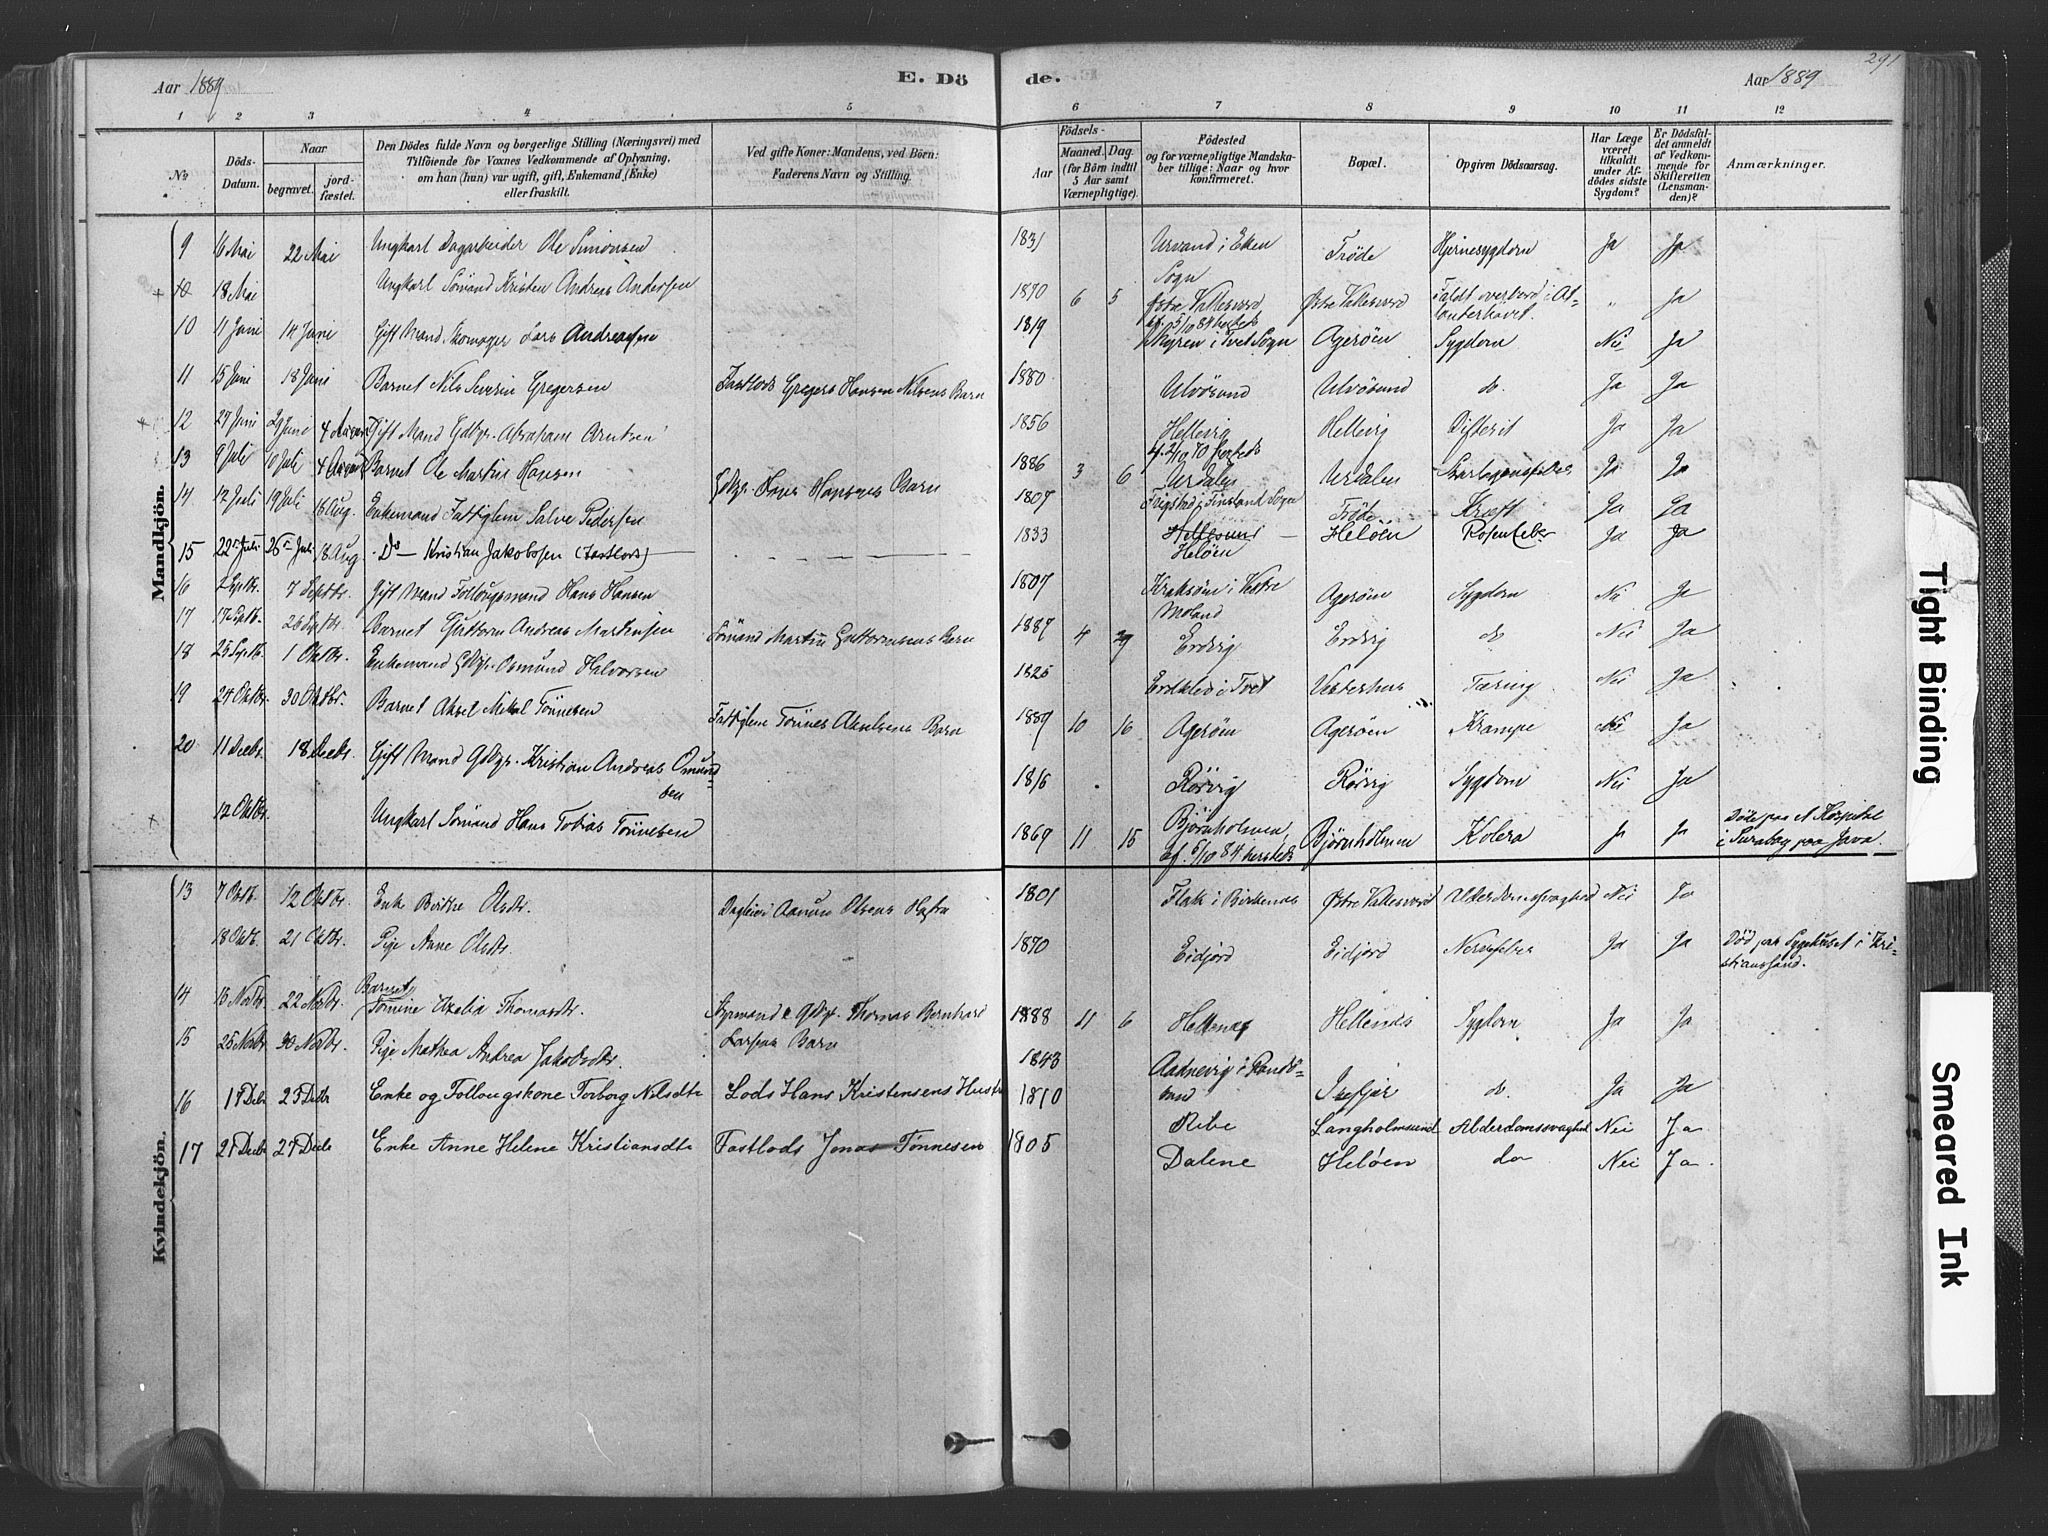 291
Aar 1889 E. Dö de. Aar 1889
1 2 3 4 5 6 7 8 9 10 11 12
No
Döds-Datum.
Naar
begravet.
jord-fæstet.
Den Dödes fulde Navn og borgerlige Stilling (Næringsvei) med
Tilföiende for Voxnes Vedkommende af Oplysning,
om han (hun) var ugift, gift, Enkemand, (Enke)
eller fraskilt.
Ved gifte Koner: Mandens, ved Börn:
Faderens Navn og Stilling.
Födsels-
Aar
Maaned. Dag.
(for Börn indtil
5 Aar samt
Værnepligtige).
Födested
og for værnepligtige Mandska-
ber tillige: Naar og hvor
konfirmeret.
Bopæl.
Opgiven Dödsaarsag.
Har Læge
været
tilkaldt
under Af-
dödes sidste
Sygdom?
Er Dödsfal-
det anmeldt
af Vedkom-
mende for
Skifteretten
(Lensman-
den)?
Anmærkninger.
Mandkjön.
9 16 Mai 22 Mai Ungkarl Dagarbeider Ole Simonsen 1831 Urvand i Eken Sogn Trøde Hjernesygdom Ja Ja
10 18 Mai Ungkarl Sømand Kristen Andreas Andersen 1870 6 5 Østre Vallesverd ef. 5/10 84 hersteds Østre Vallesverd Faldt overbord i Atlanterhavet. " Ja
10 11 Juni 14 Juni Gift Mand Skomager Lars Andreassen 1819 Myren i Tvet Sogn Agerøen Sygdom Nei Ja
11 15 Juni 18 Juni Barnet Nils Severin Gregersen Fastlods Gregers Hansen Nilsens Barn 1880 Ulvøsund Ulvøsund do. Ja Ja
12 27 Juni 29 Juni 4 August Gift Mand Gdbgr. Abraham Arntsen 1856 Hellevig Hellevig Difterit Ja Ja
13 9 Juli 10 Juli 4 August Barnet Ole Martin Hansen Gdbgr. Hans Hansens Barn 1886 3 6 Urdalen Urdalen Skarlagensfeber Ja Ja
14 12 Juli 19 Juli 16 Aug. Enkemand Fattiglem Salve Pedersen 1807 Frigstad i Finsland Sogn Trøde Kræft Ja Ja
15 22 Juli 26 Juli 18 Aug Do Kristian Jakobsen (Fastlods) 1833 Hellesund Heløen Heløen Rosenfeber Ja Ja
16 2 Septbr. 7 Septbr. Gift Mand Follougsmand Hans Hansen 1807 Kraksøm i Vestre Moland Agerøen Sygdom Nei Ja
17 17 Septb. 26 Septbr. Barnet Guttorm Andreas Martinsen Sømand Martin Guttormsens Barn 1887 4 29 Erdvig Erdvig do Nei Ja
18 25 Septb. 1 Oktbr. Enkemand Gdbgr. Osmund Halvorsen 1825 Erikleiv i Tvet Vesterhus Tæring Nei Ja
19 24 Oktbr. 30 Oktbr. Barnet Aksel Mikal Tønnesen Fattiglem Tønnes Akselsens Barn 1889 10 16 Agerøen Agerøen Krampe Nei Ja
20 11 Decbr. 18 Decbr. Gift Mand Gdbgr. Kristian Andreas Osmundsen 1816 Rørvig Rørvig Sygdom Nei Ja
12 Oktbr. Ungkarl Sømand Hans Tobias Tønnesen 1869 11 15 Bjørnholmen, ef. 5/10 84 hersteds Bjørnholmen Kolera Ja Ja Døde paa et Hospital i Surabay paa Java.
Kvindekjön.
13 7 Oktb. 12 Oktbr. Enke Berthe Olsdtr. Dagleier Aanun Olsens Hustru 1801 Flak i Birkenes Østre Vallesverd Alderdomssvaghed Nei Ja
18 Oktb. 21 Oktbr. Pige Anne Olsdtr. 1870 Eidjord Eidjord Nervefeber Ja Ja Død paa Sygehuset i Kristianssand.
14 16 Novbr. 22 Novbr. Barnet Tomine Axelia Thomasdtr. Styrmand & Gdbgr. Thomas Bernhard Larsens Barn 1888 11 6 Hellenes Hellenes Sygdom Ja Ja
15 25 Novbr. 30 Novbr. Pige Mathea Andrea Jakobsdtr. 1843 Aadnevig i Randøsund Isefjær do. Ja Ja
16 17 Decbr 23 Decbr Enke og Follougskone Torborg Nilsdtr Lods Hans Kristensens Hustru 1810 Ribe Langholmsund Alderdomssvaghed Nei Ja
17 21 Decbr 27 Decbr Enke Anne Helene Kristiansdtr Fastlods Jonas Tønnesen 1805 Dalene Heløen do Nei Ja
Tight Binding
Smeared Ink